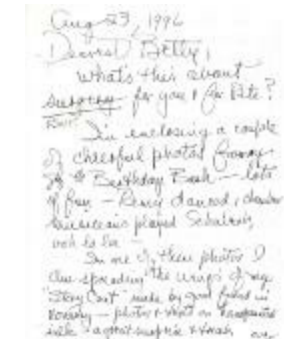 Aug 23, 1996
Dearest Betty,
What's this about
surgery for you & for Pete?
I'm enclosing a couple
of cheerful photos from
Birthday Bash — lots
of fun — Remy danced, chamber
musicians played Schubert,
ooh la la —
In one of these photos I
am spreading the wings of my
"Story Coat" made by good friend in
— photos & words on
silk — a great surprise &
over